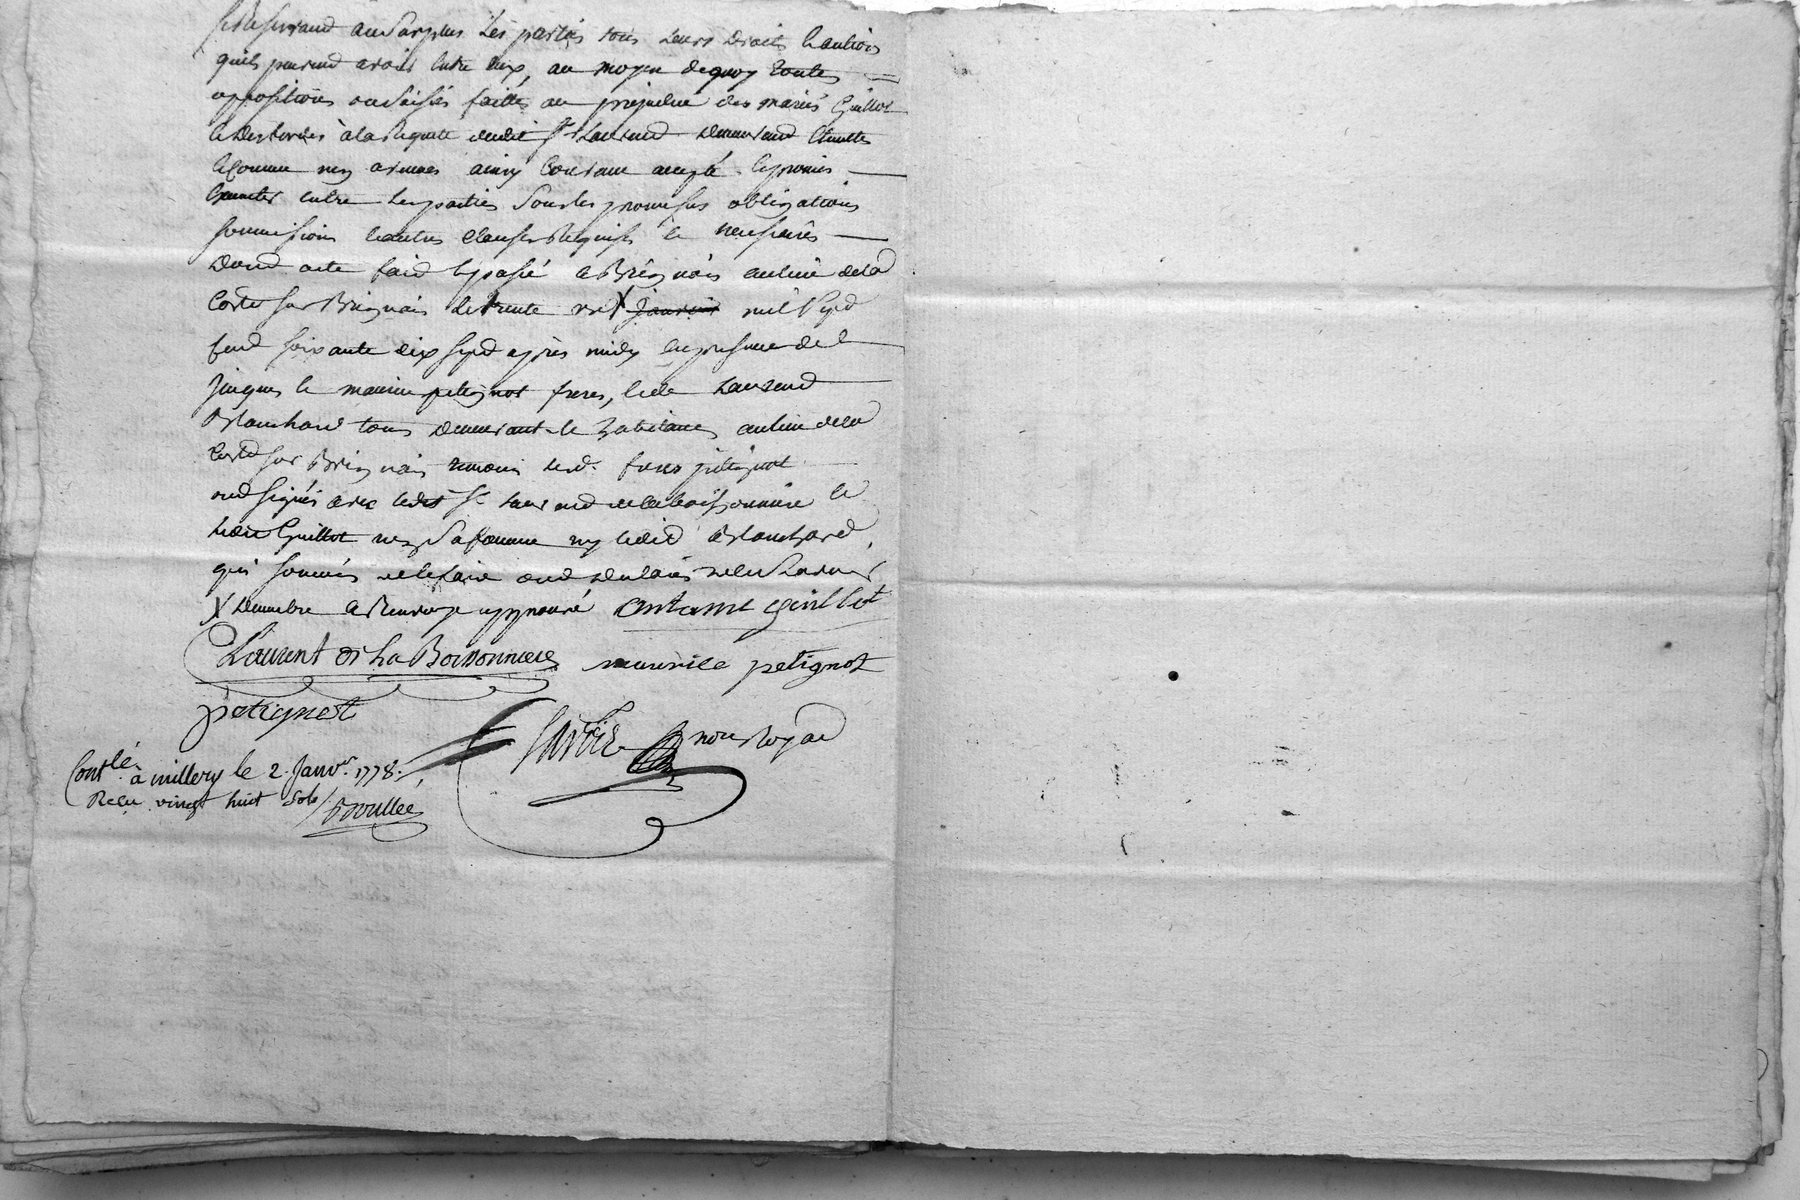 se Reservand au Surplus Les parties tous Leurs Droits & actions
quils peuvend avoir Entre Eux, au moyen dequoy toutes
oppositions ou Saisies faittes au prejudice des mariés Guillot
& Desbordes à la Requete dudit Sr Laurend demeurend Eteintes
& Comme non avenues ainsy Convenu accepté & promis
Executer entre Les parties Sous les promesses obligations
soumissions & autres Clauses Requises & necessaires
Dond acte faid & passé a Brignais au lieu de la
Coste sur Brignais le trente un X janvier mil sepd
cend soixante dix sepd après midy en presence de
Jacques & maurice petignot freres, & de Laurend
Blanchard tous demeurant & habitans au lieu de la
Coste sur Brignais temoins Lesd. freres petignot
ond signés avec ledit Sr Laurend de la boissonniere &
Ledit Guillot non Sa femme ny ledid Blanchard,
qui sommés de le faire ond declarés ne le Scavoir
X decembre a Renvoye approuvé antoine guillot
Laurent de La Boissonniere maurice petignot
petignot
nore Royal
Contlé à millery le 2. Janvr. 1778.
Recu vingt huit sols